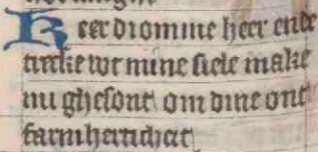 Keer di omme heer ende
trecke wt mine siele make
mi ghesont om dine ont
farmherticheit